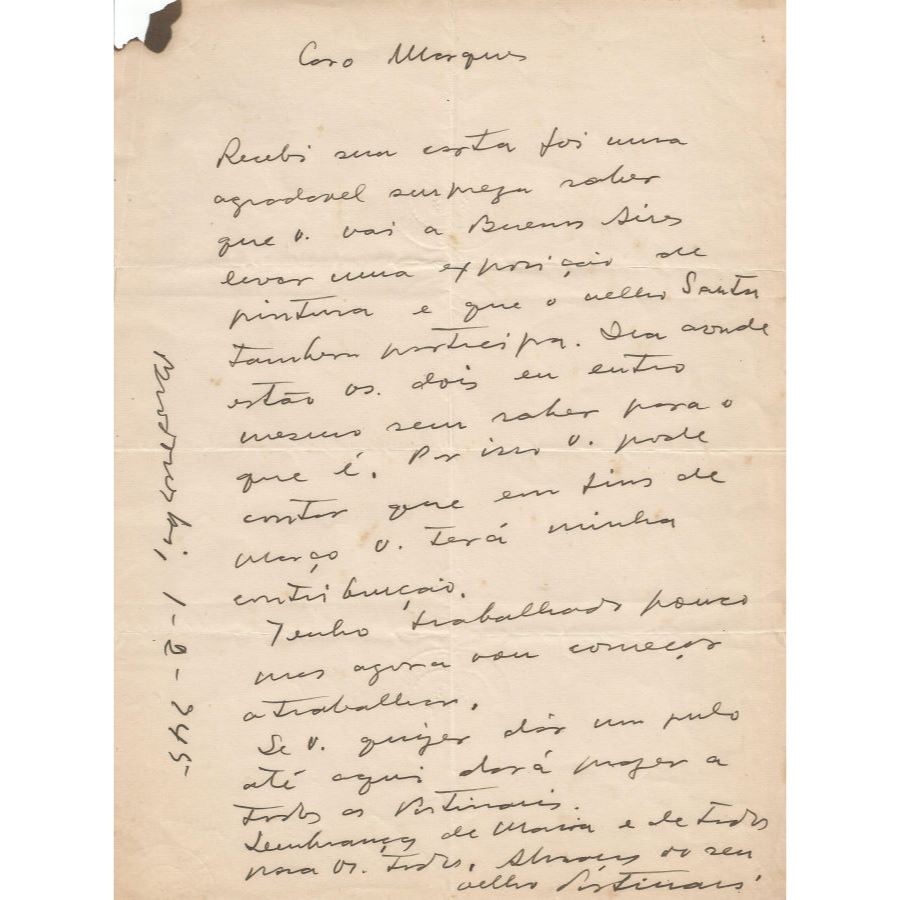 Caro Marques
Recebi sua carta foi uma
agradavel surpreza saber
que v. vai a Buenos Aires
levar uma exposição de
pintura e que o velho Santa
tambem participa. Dia aonde
estão os. dois eu entro
mesmo sem saber para o
que é. Por isso v. pode
contar que em fins de
março v. terá minha
contribuição.
Tenho trabalhado pouco
mas agora vou começar
a trabalhar.
Se v. quizer dár um pulo
até aqui dará prazer a
todos os Portinaris.
Lembranças de Maria e de todos
para vs. todos. Abraços do seu
velho Portinari
Brodowski, 1-2-945